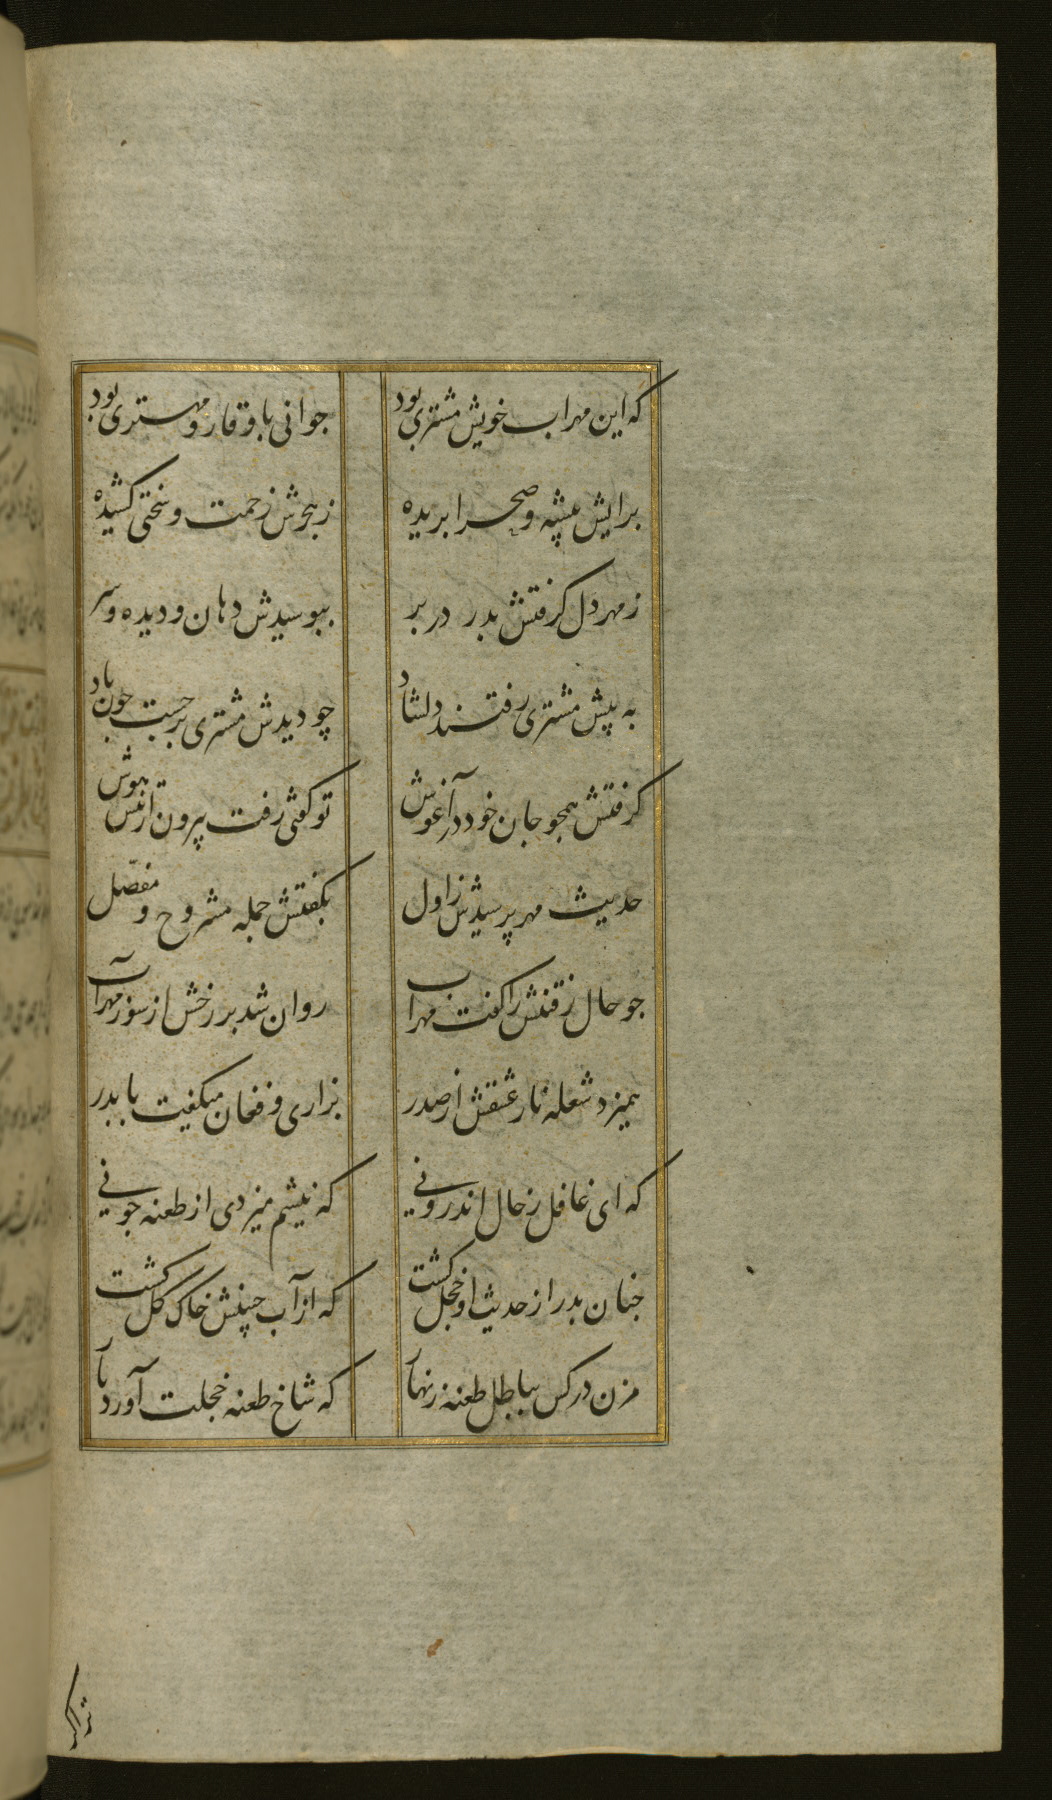 که این مهراب خویش مشتری بود جوانی با وقار و مهتری بود
برایش بیشه و صحرا بریده ز هجرش زحمت و سختی کشیده
ز مهر دل گرفتش بدر در بر ببوسیدش دهان و دیده و سر
به پیش مشتری رفتند دلشاد چو دیدش مشتری برجست چون باد
گرفتش همچو جان خود در آغوش تو گفتی رفت بیرون از تنش هوش
حدیث مهر پرسیدش ز اول بگفتش جمله مشروح و مفصل
چو حال رفتنش را گفت مهراب روان شد بر رخش از سوز مهر آب
همیزد شعله نار عشقش از صدر بزاری و فغان میگفت با بدر
که ای غافل ز حال اندرونی که نیشم میزدی از طعنه چونی
چنان بدر از حدیث او خجل گشت که از آب جبینش خاک گل گشت
مزن در کس بباطل طعنه زنهار که شاخ طعنه خجلت آورد بار